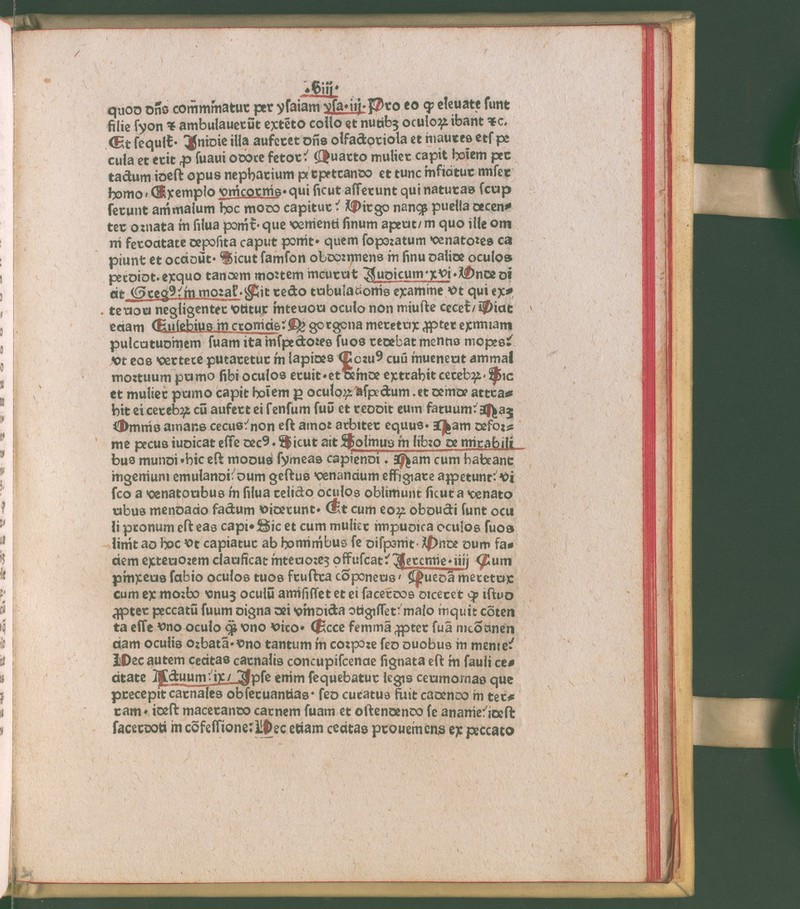 .Giij.
quod dn̄s com̄minatur per ysaiam ysa.iij. Pro eo ꝙ eleuate sunt
filie syon ⁊ ambulauerūt extēto collo et nutibꝫ oculoꝝ ibant ⁊c.
Et sequit̄. Inidie illa auferet dn̄s olfactoriola et inaures et
cula et erit ꝓ suaui odore fetor: Quarto mulier capit hoīem per
tactum idest opus nepharium perpetrando et tunc inficitur miser
homo. Exemplo vnicornis. qui sicut asserunt qui naturas scrip
serunt animalium hoc modo capitur: Virgo nanqꝫ puella decen⸗
ter ornata in silua ponit̄. que venienti sinum aperit/ in quo ille om
ni ferocitate deposita caput ponit. quem soporatum venatores ca
piunt et occidūt. Sicut samson obdormiens in sinu dalide oculos
perdidit. exquo tandem mortem incurrit Judicum.xvi. Vnde di
cit Gregꝰ: in moral̄. Fit recto tribulationis examine vt qui ex⸗
teriori negligenter vtitur interiori oculo non miuste cecet̄/ Dicit
eciam Eusebius in cronicis: Qꝫ gorgona meretrix ꝓpter eximiam
pulcritudinem suam ita inspectores suos redebat mentis inopes:
vt eos vertere putaretur in lapides Coruꝰ cuū inuenerit animal
mortuum primo sibi oculos eruit. et deinde extrahit cerebꝝ. Sic
et mulier primo capit hoīem ꝑ oculoꝝ aspectum. et deinde attra⸗
hit ei cerebꝝ cū aufert ei sensum suū et reddit eum fatuum: Naꝫ
Omnis amans cecus: non est amor arbiter equus. Nam defor⸗
me pecus iudicat esse decꝰ. Sicut ait Solinus in libro de mirabili
bus mundi. hic est modus symeas capiendi. Nam cum habeant
ingenium emulandi: dum gestus venancium effigiare appetunt: vi
sco a venatoribus in silua relicto oculos oblimunt sicut a venato
ribus mendacio factum viderunt. Et cum eoꝝ obducti sunt ocu
li pronum est eas capi. Sic et cum mulier impudica oculos suos
linit ad hoc vt capiatur ab hominibus se disponit. Vnde dum fa⸗
ciem exteriorem clarificat interioreꝫ offuscat: Jeremie.iiij Cum
pinxeris stibio oculos tuos frustra cōponeris/ Quedā meretrix
cum ex morbo vnuꝫ oculū amisisset et ei sacerdos diceret ꝙ istud
ꝓpter peccatū suum digna dei vindicta ↄtigisset: malo inquit cōten
ta esse vno oculo qꝫ̄ vno vico. Ecce feminā ꝓpter suā incōtinen
ciam oculis orbatā. vno tantum in corpore sed duobus in mente:
Nec autem cecitas carnalis concupiscencie signata est in sauli ce⸗
citate Actuum: ix/ Ipse enim sequebatur legis cerimonias que
precepit carnales obseruantias. sed curatus fuit cadendo in ter⸗
ram. idest macerando carnem suam et ostendendo se ananie: idest
sacerdoti in cōfessione: Nec etiam cecitas proueniens ex peccato